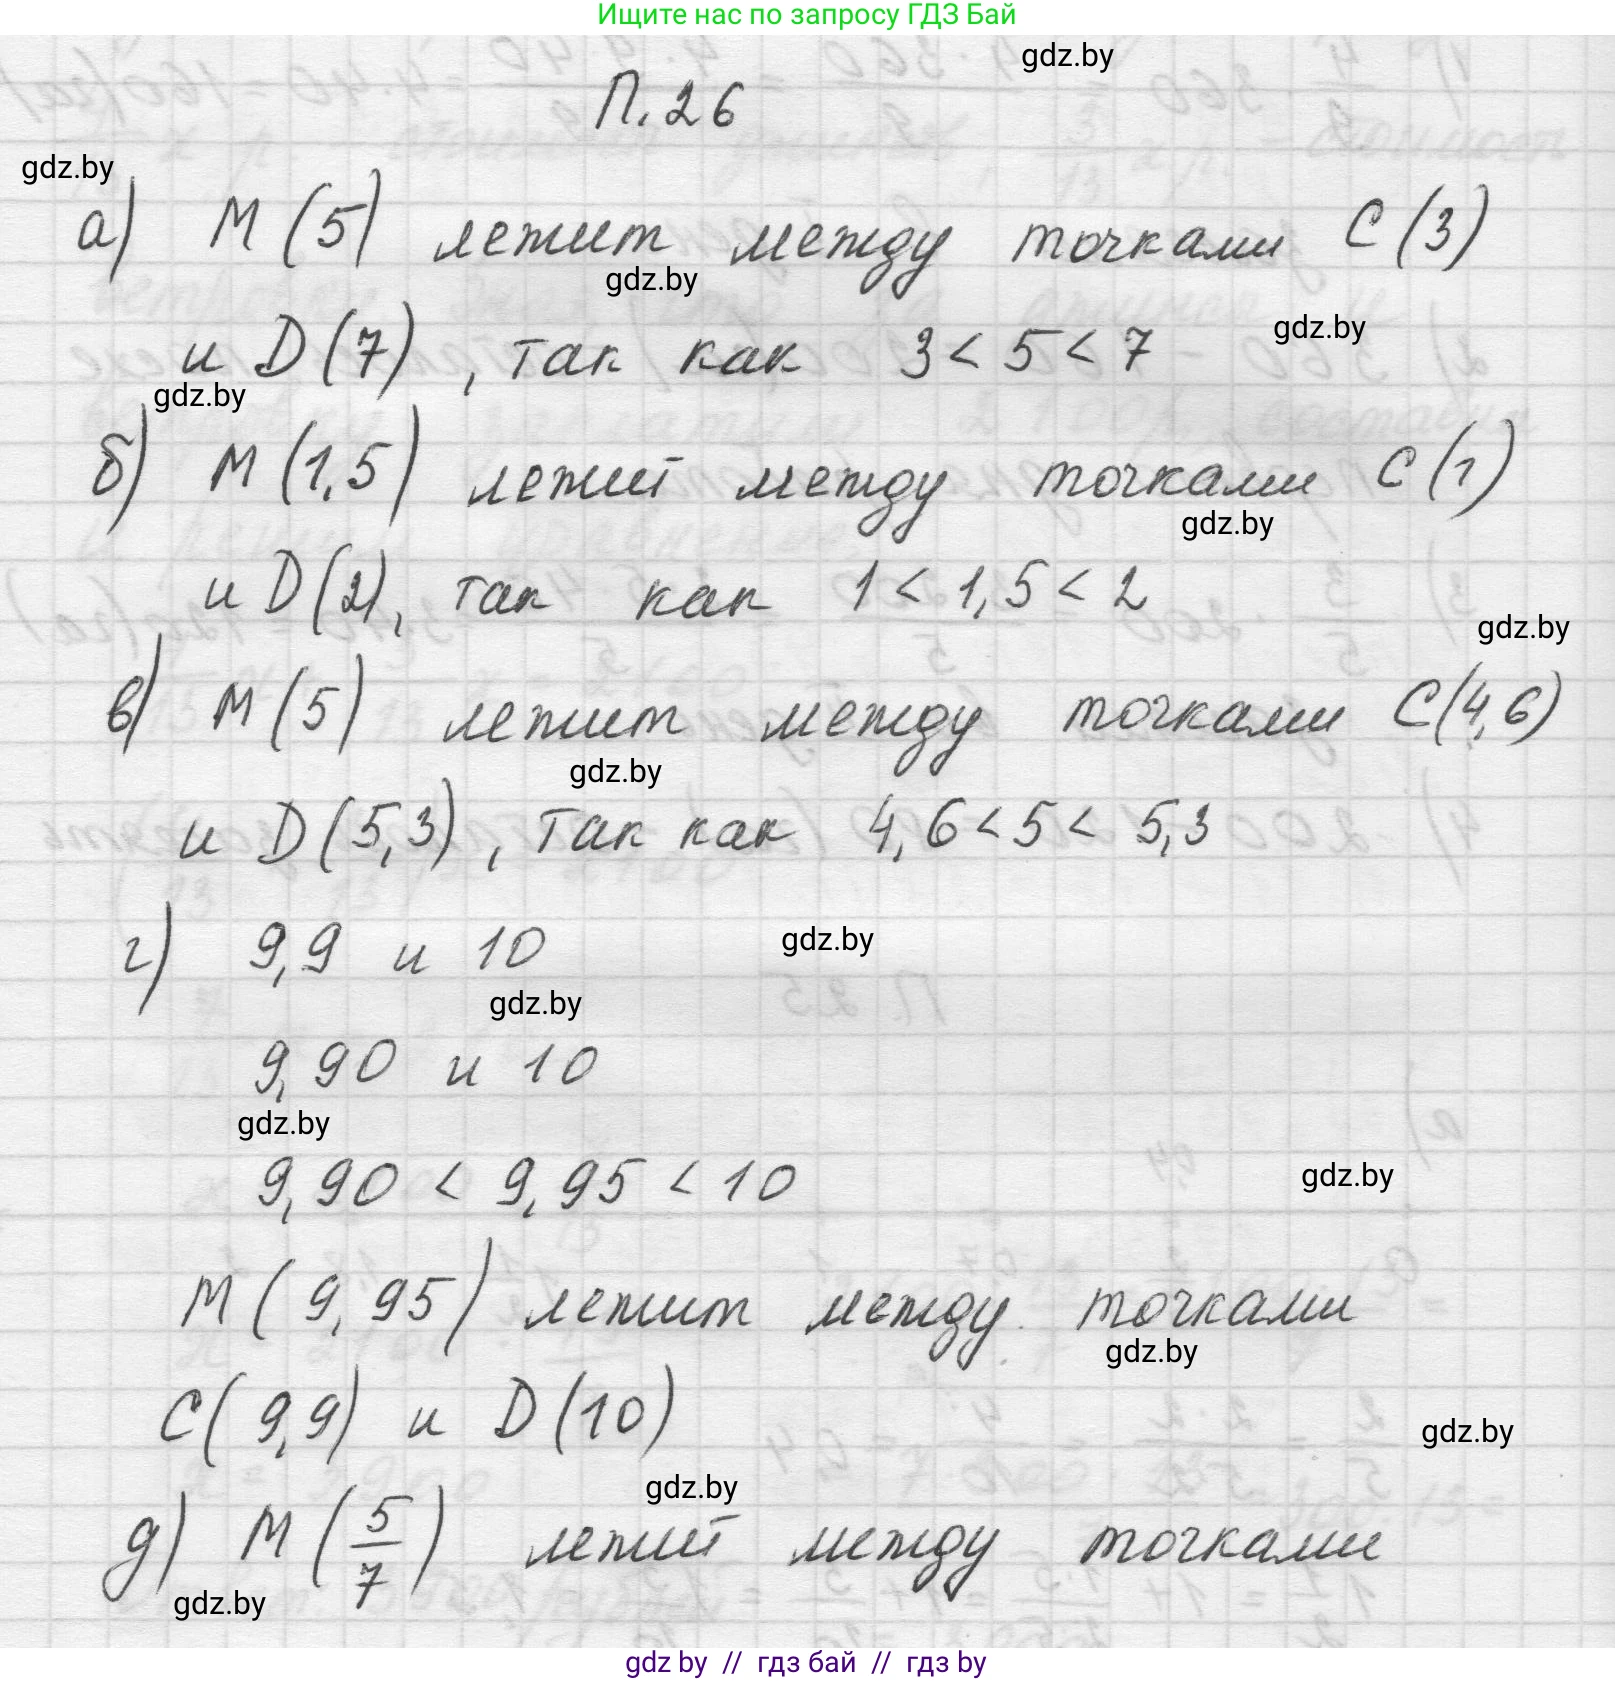 Ищите нас по запросу ГДЗ Бай
gdz.by
П.26
gdz.by
а) М(5) лежит между точками С(3)
gdz.by
gdz.by
и D(7), так как 3 < 5 < 7
gdz.by
б) М(1,5) лежит между точками С(1)
gdz.by
и D(2), так как 1 < 1,5 < 2
gdz.by
в) М(5) лежит между точками С(4,6)
gdz.by
и D(5,3), так как 4,6 < 5 < 5,3
г) 9,9 и 10
gdz.by
gdz.by
9,90 и 10
gdz.by
9,90 < 9,95 < 10
gdz.by
М(9,95) лежит между точками
gdz.by
С(9,9) и D(10)
gdz.by
gdz.by
д) М(5/7) лежит между точками
gdz.by
gdz by // гдз бай // гдз by